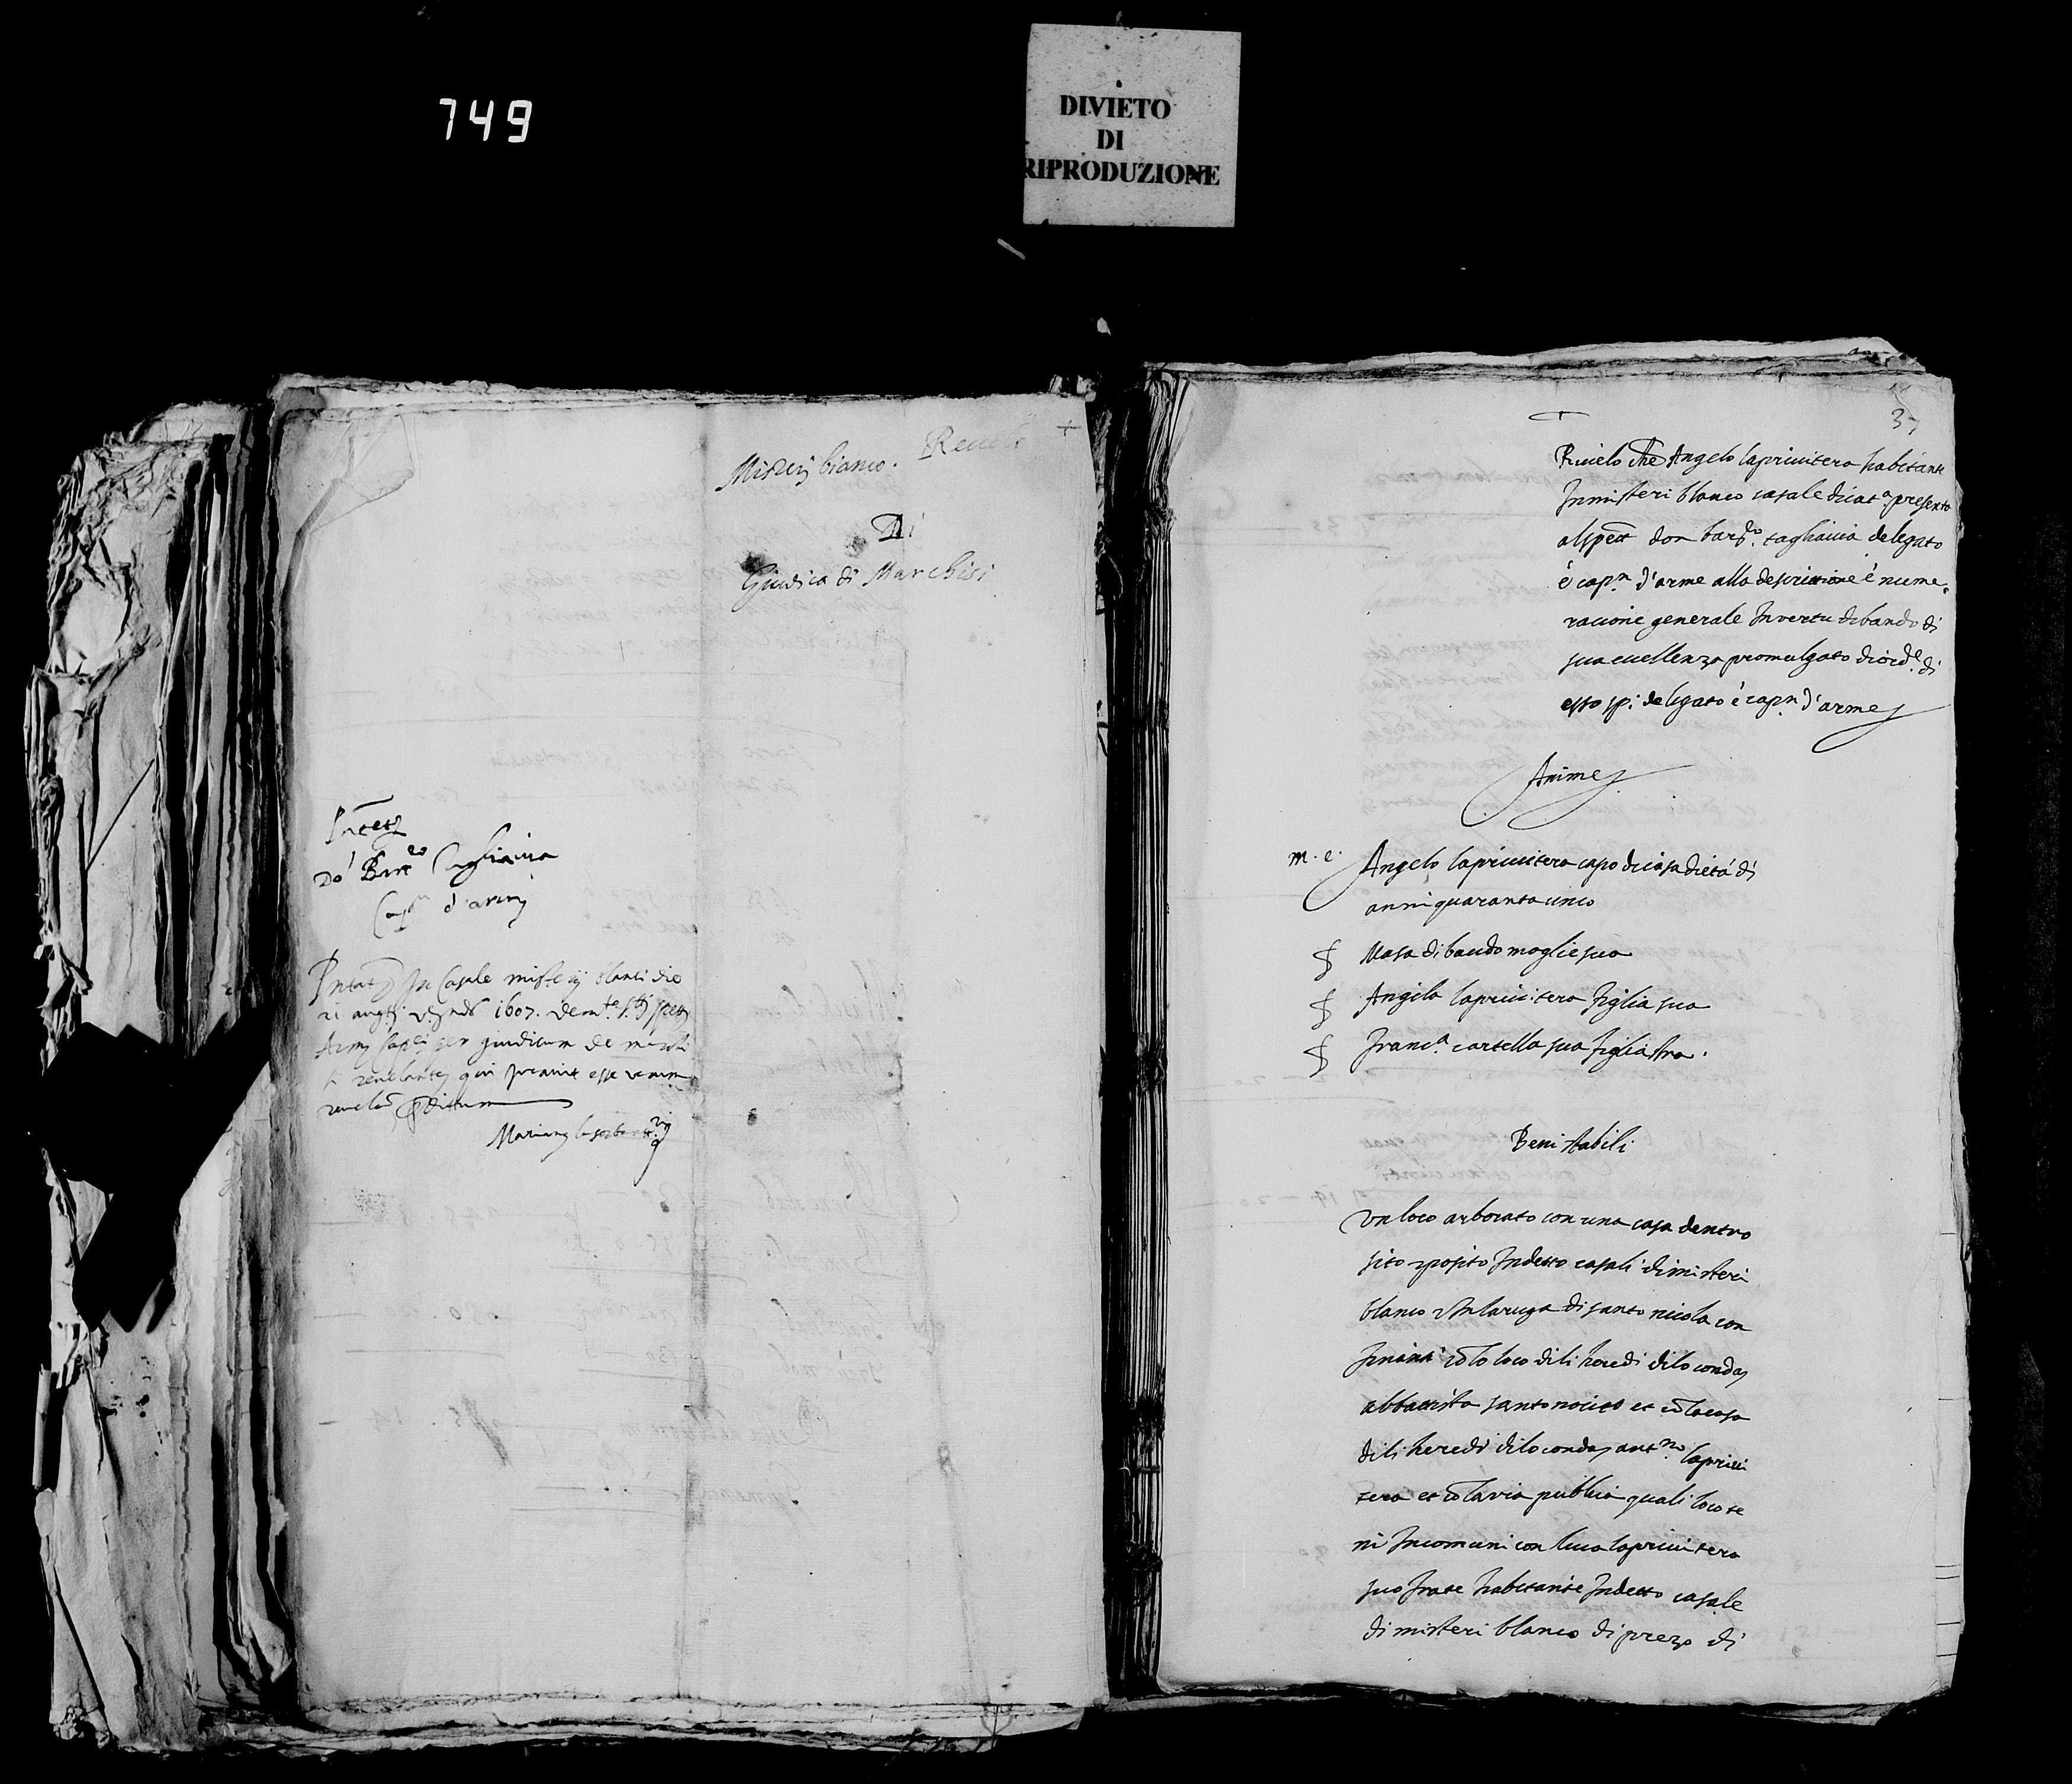 749
DIVIETO
DI
RIPRODUZIONE
Misterj bianco. Revelo
Di
Giudica di Marchisi
Do' Bar.eo Tagliavia
Cap.n d'armj
In Casale misterij blanci die
1607.
per giudicam de
revelantej qui juravit esse verum
37
Rivelo che Angelo lapriuitera habitante
Inmisteri blanco casale dicat.a presenta
alspett don bar.do tagliauia delegato
è cap.n d'arme alla descrittione è nume
racione generale Invertu dibando di
sua eccellenza promulgato diord.e di
esso sp: delegato è cap.n d'arme
Anime
m. e. Angelo lapriuitera capo dicasa dietà di
anni quaranta cinco
Masa di baudo moglie sua
Angila lapriuitera figlia sua
Franc.a cartella sua figliastra.
Beni stabili
Vn loco arborato con una casa dentro
sito et posito Indetto casali dimisteri
blanco Inlaruga di santo nicola con
finanti colo loco dili heredi dilo condaz
abbattista santonocito et cōlacasa
dili heredi dilo condaz ant.no lapriui
tera et cōlavia publica quali loco te
ni Incomuni con luca lapriuitera
suo frate habitante Indetto casale
di misteri blanco di prezo di